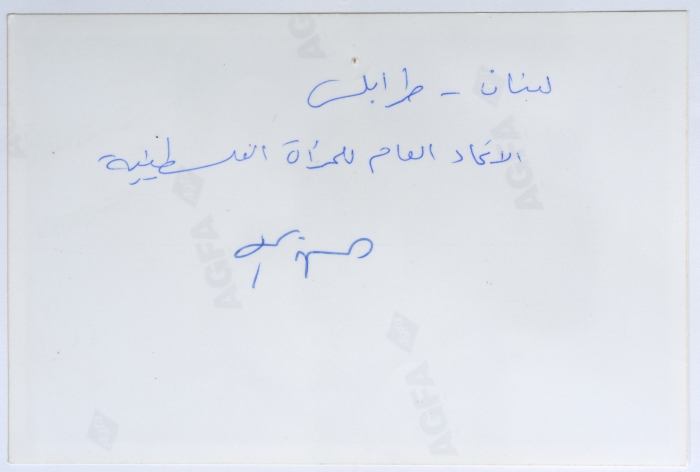 لبنان - طرابلس
الاتحاد العام للمرأة الفلسطينية
AGFA
AGFA
AGFA
AGFA